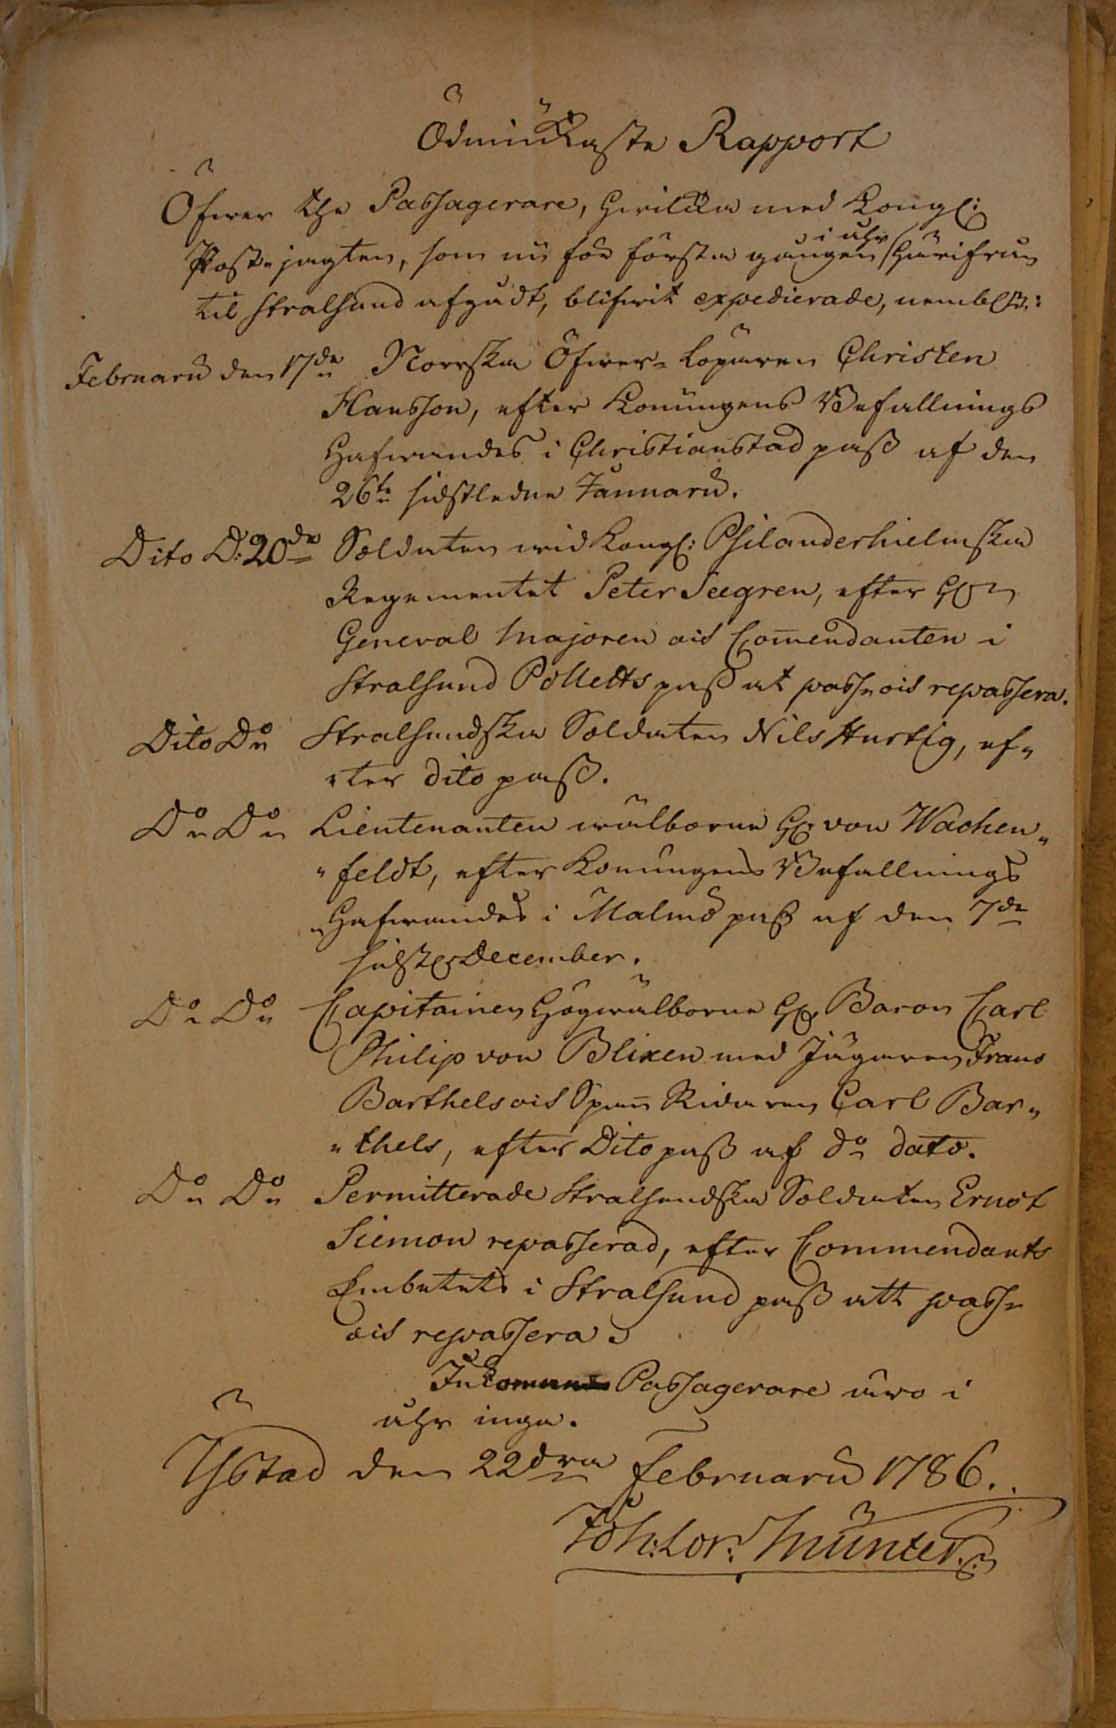 Ödmiukaste Rapport
Öfwer the Passagerare, hwilka med Kongl:
Post-jagten, som nu för första gången i åhr härifrån
til Stralsund afgådt, blifwit expedierade, nembl:
Februarii den 17de Norrska Öfwer-Löparen Christen
Hansson, efter Konungens Befallnings
Hafwandes i Christianstad pass af den
26te sidstledne Januarii.
Dito D: 20de Soldaten wid Kongl: Psilanderhielmska
Regementet Peter Seegren, efter Hr
General Majoren och Comendanten i
Stralsund Polletts pass at passe- och repassera.
Dito Do Stralsundska Soldaten Nils Hurtig, ef-
-ter dito pass.
Do Do Lieutenanten wälborne Hr von Wachen-
-feldt, efter Konungens Befallnings
Hafwandes i Malmö pass af den 7de
sidstl December.
Do Do Capitainen Högwälborne Hr Baron Carl
Philip von Blixen med Jägaren Frans
Barthels och Span Ridaren Carl Bar-
-thels, efter Dito pass af do dato.
Do Do Permitterade Stralsundska Soldaten Ernst
Siemon repasserad, efter Commendants
Embetets i Stralsund pass att passe-
och repassera.
Inkomne Passagerare äro i
åhr inga.
Ystad den 22dra Februarii 1786.
Joh: Lor: Münter.